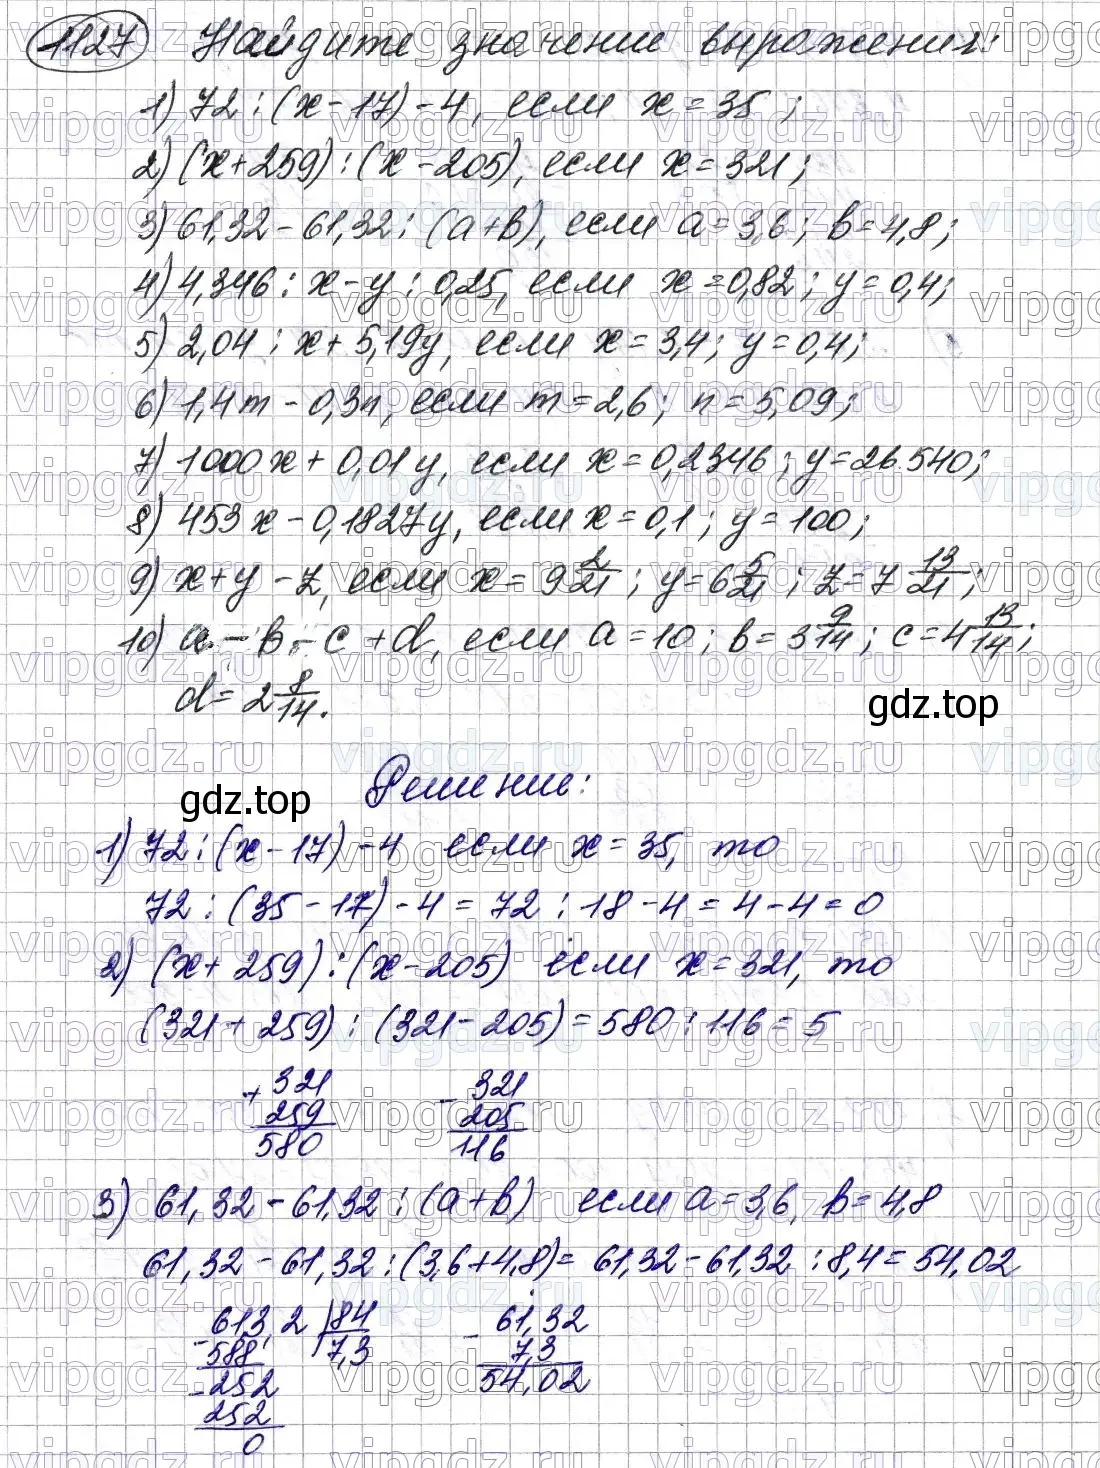 1127 Найдите значение выражения:
1) 72 : (x - 17) - 4, если x = 35 ;
2) (x + 259) : (x - 205), если x = 321;
3) 61,32 - 61,32 : (a + b), если a = 3,6 ; b = 4,8 ;
4) 4,346 : x - y : 0,25, если x = 0,82 ; y = 0,4;
5) 2,04 : x + 5,19y, если x = 3,4 ; y = 0,4;
6) 1,4m - 0,3n, если m = 2,6 ; n = 5,09;
7) 1000x + 0,01y, если x = 0,2346 ; y = 26 540;
8) 453x - 0,1827y, если x = 0,1 ; y = 100;
9) x + y - z, если x = 9 2/21 ; y = 6 5/21 ; z = 7 13/21 ;
10) a - b - c + d, если a = 10 ; b = 3 9/14 ; c = 4 13/14 ;
d = 2 8/14.
gdz.top
Решение:
gdz.top
1) 72 : (x - 17) - 4 если x = 35, то
72 : (35 - 17) - 4 = 72 : 18 - 4 = 4 - 4 = 0
2) (x + 259) : (x - 205) если x = 321, то
(321 + 259) : (321 - 205) = 580 : 116 = 5
+ 321 - 321
259 205
580 116
3) 61,32 - 61,32 : (a + b) если a = 3,6, b = 4,8
61,32 - 61,32 : (3,6 + 4,8) = 61,32 - 61,32 : 8,4 = 54,02
- 613,2 | 84 - 61,32
588 7,3 7,3
- 252 54,02
252
0